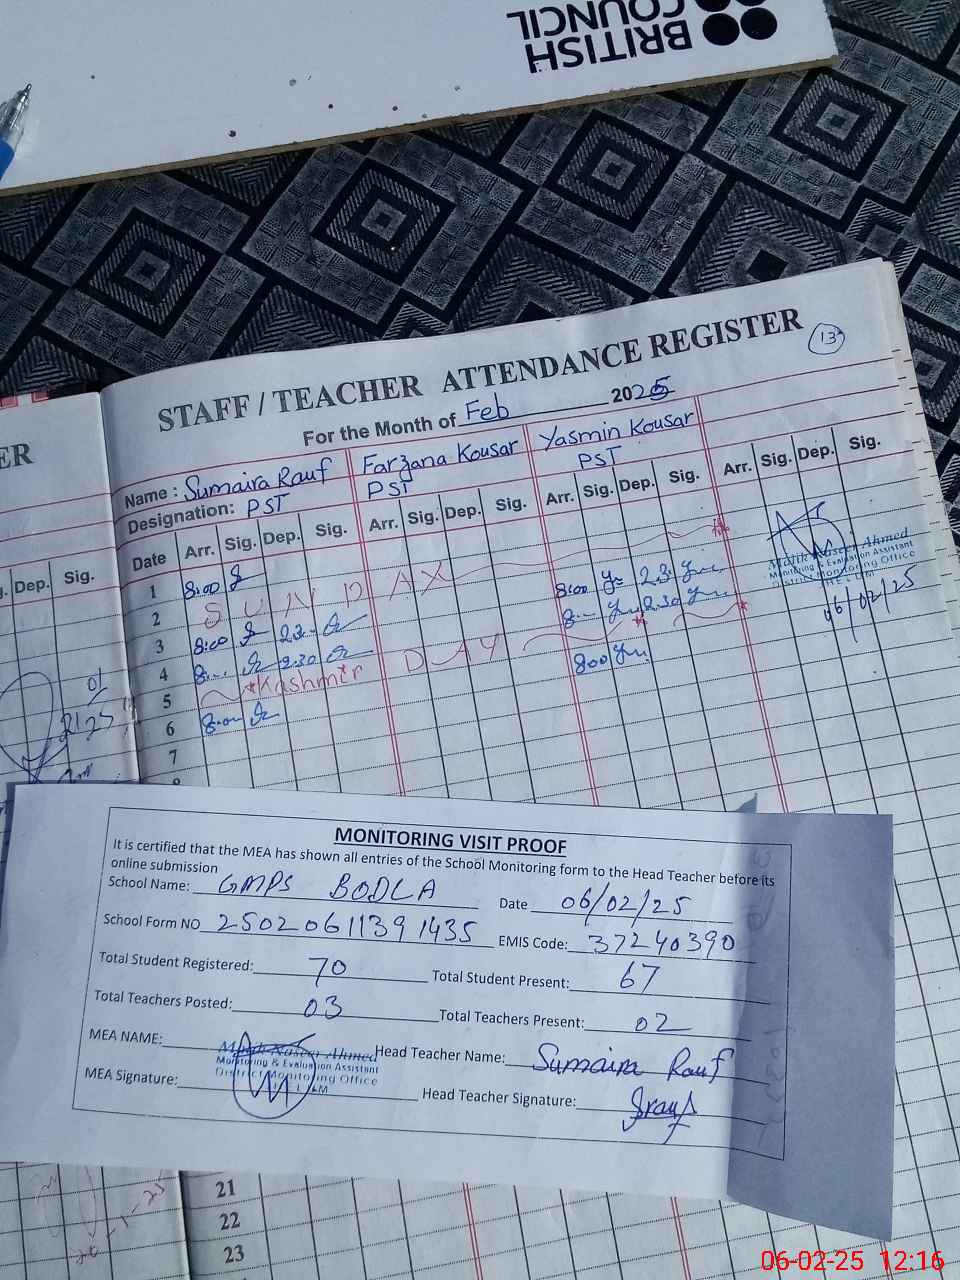 BRITISH
COUNCIL
STAFF / TEACHER ATTENDANCE REGISTER
13
For the Month of Feb 2025
Name : Sumaira Rauf Farzana Kousar Yasmin Kousar
Designation: PST PST PST
Date Arr. Sig. Dep. Sig. Arr. Sig. Dep. Sig. Arr. Sig. Dep. Sig. Arr. Sig. Dep. Sig.
ER
Dep. Sig.
1 8:00
2 S U N D A
3 8:00 8:00
4 2:30 2:30
5 Kashmir DAY
6 8:00 800
7
8
Malik Naseer Ahmed
Monitoring & Evaluation Assistant
District Monitoring Office
06/02/25
01
MONITORING VISIT PROOF
It is certified that the MEA has shown all entries of the School Monitoring form to the Head Teacher before its
online submission
School Name: GMPS BODLA Date 06/02/25
School Form NO 2502061139 1435 EMIS Code: 37240390
Total Student Registered: 70 Total Student Present: 67
Total Teachers Posted: 03 Total Teachers Present: 02
MEA NAME: Malik Naseer Ahmed Head Teacher Name: Sumaira Rauf
Monitoring & Evaluation Assistant
District Monitoring Office
MEA Signature: Head Teacher Signature: Srauf
21
22
23
06-02-25 12:16